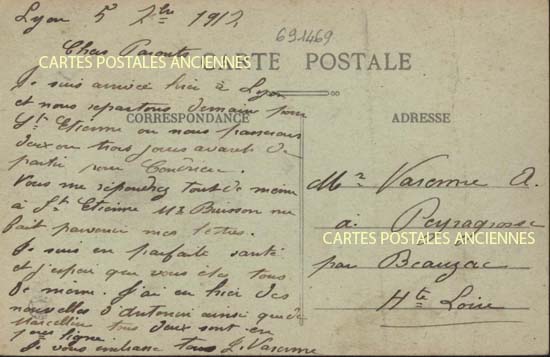 Lyon 5 7bre 1912
691469
Chers Parents
CARTE POSTALE
CARTES POSTALES ANCIENNES
Je suis arrivé hier à Lyon
et nous repartons demain pour
St Etienne ou nous passerons
deux ou trois jours avant de
partir pour
Vous me répondrez tout de même
à St Etienne Mr Buisson me
fait parvenir mes lettres.
Je suis en parfaite santé
et j'espère que vous êtes tous
de même. J'ai eu hier des
nouvelles d'Antonin ainsi que de
Marcellin tous deux sont en
ligne.
Je vous embrasse tous J. Varenne
CORRESPONDANCE
ADRESSE
Mr Varenne A.
à Peyragrosse
CARTES POSTALES ANCIENNES
par Beauzac
Hte Loire